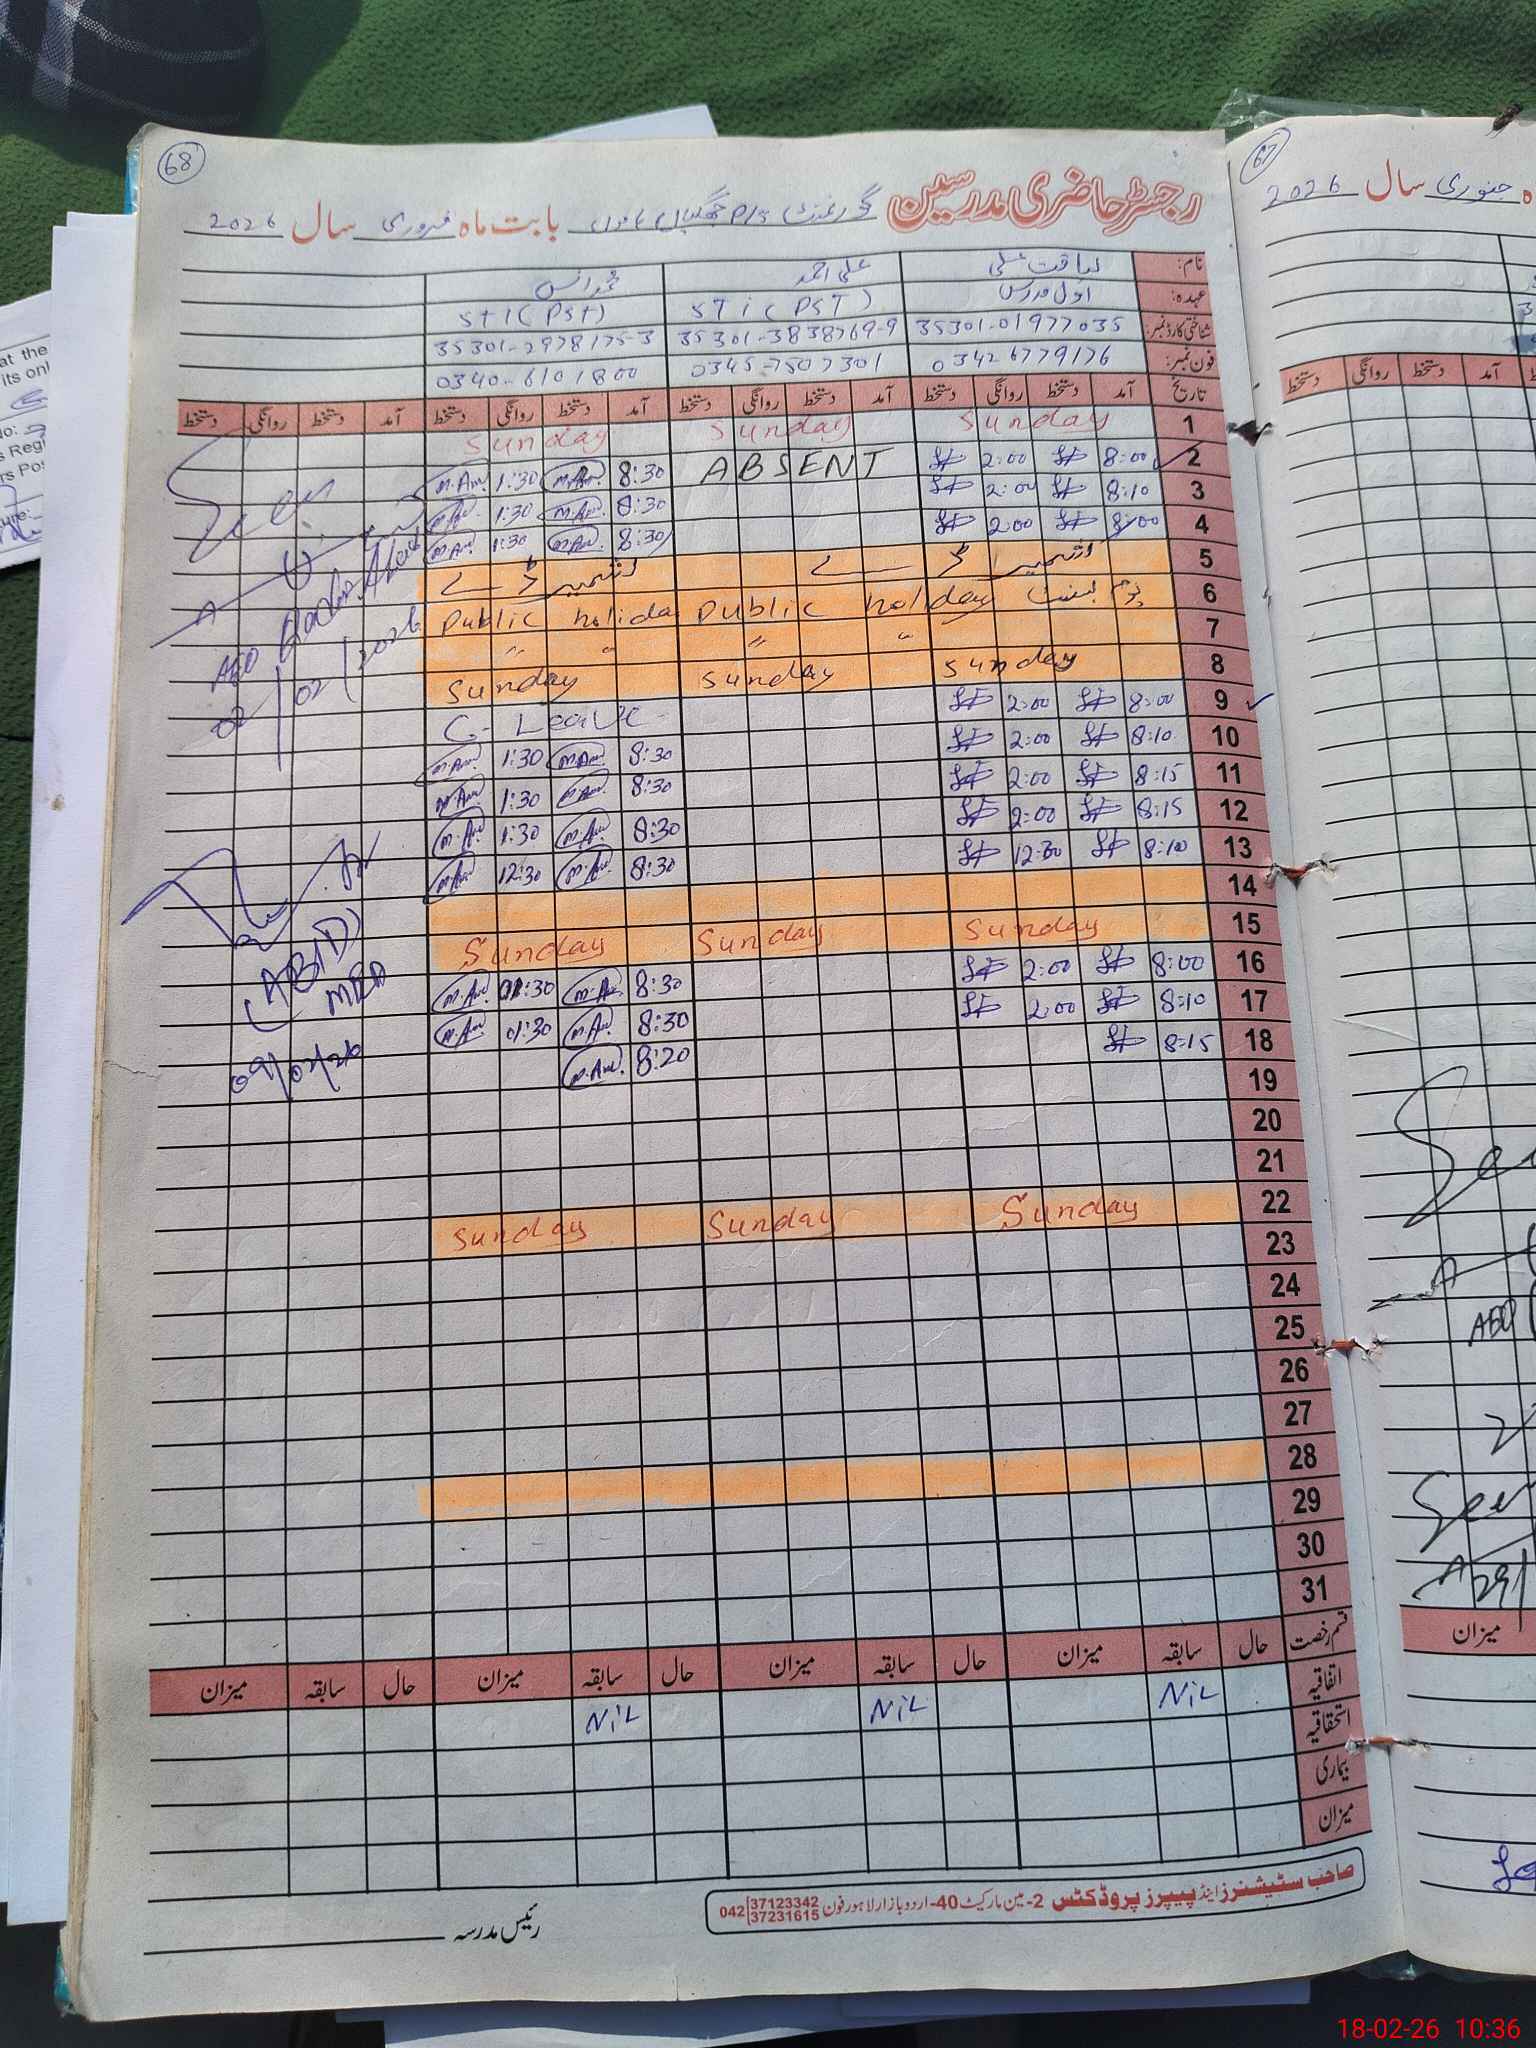 68
رجسٹر حاضری مدرسین گورنمنٹ P/S بابت ماہ فروری سال 2026
نام: لیاقت علی علی احمد محمد انس
عہدہ: اول مدرس STI (PST) STI (PST)
شناختی کارڈ نمبر: 35301-01977035 35301-3838769-9 35301-2978175-3
فون نمبر: 03426779176 0345-7507301 0340-6101800
تاریخ آمد دستخط روانگی دستخط آمد دستخط روانگی دستخط آمد دستخط روانگی دستخط آمد دستخط روانگی دستخط
1 Sunday Sunday Sunday
2 8:00 2:00 ABSENT 8:30 1:30
3 8:10 2:00 8:30 1:30
4 8:00 2:00 8:30 1:30
5 کشمیر ڈے کشمیر ڈے
6 Public holiday Public holiday
7 " " " "
8 Sunday Sunday Sunday
9 8:00 2:00 C-Leave
10 8:10 2:00 8:30 1:30
11 8:15 2:00 8:30 1:30
12 8:15 2:00 8:30 1:30
13 8:10 12:30 8:30 12:30
14
15 Sunday Sunday Sunday
16 8:00 2:00 8:30 01:30
17 8:10 2:00 8:30 01:30
18 8:15 8:20
19
20
21
22 Sunday Sunday Sunday
23
24
25
26
27
28
29
30
31
قسم رخصت حال سابقہ میزان حال سابقہ میزان حال سابقہ میزان حال سابقہ میزان
اتفاقیہ Nil Nil Nil
استحقاقیہ
بیماری
میزان
صاحب سٹیشنرز اینڈ پیپرز پروڈکٹس 2-مین مارکیٹ 40-اردو بازار لاہور فون 042 37123342 37231615
رئیس مدرسہ
AEO
02/02/2026
(ABID)
MEA
09/02/26
67
جنوری سال 2026
آمد دستخط روانگی دستخط
AEO
میزان
at the
its onl
No:
Reg
rs Pos
18-02-26 10:36